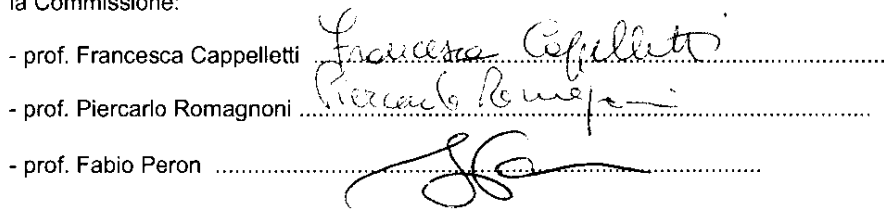 la Commissione:
- prof. Francesca Cappelletti Francesca Cappelletti
- prof. Piercarlo Romagnoni Piercarlo Romagnoni
- prof. Fabio Peron